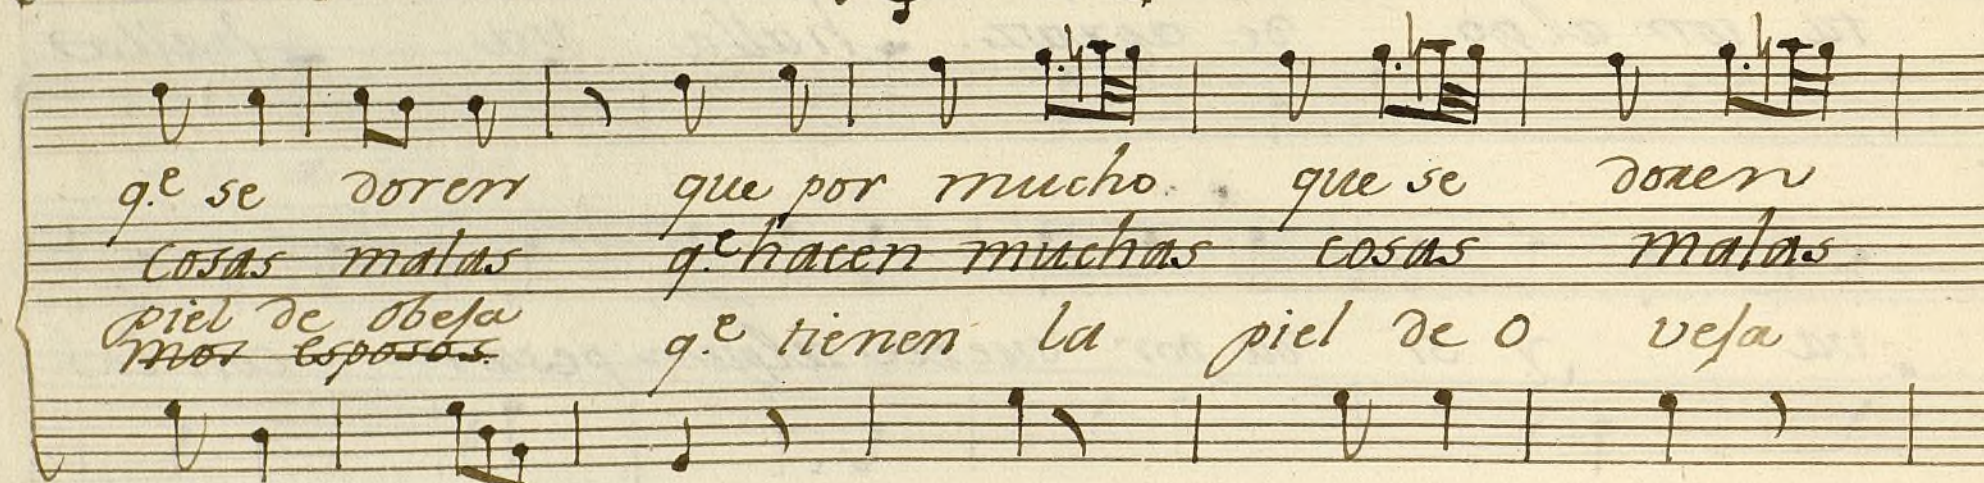 q.e se doren que por mucho que se doren
cosas malas q.e hacen muchas cosas malas
piel de obesa
mos esposos. q.e tienen la piel de o vesa